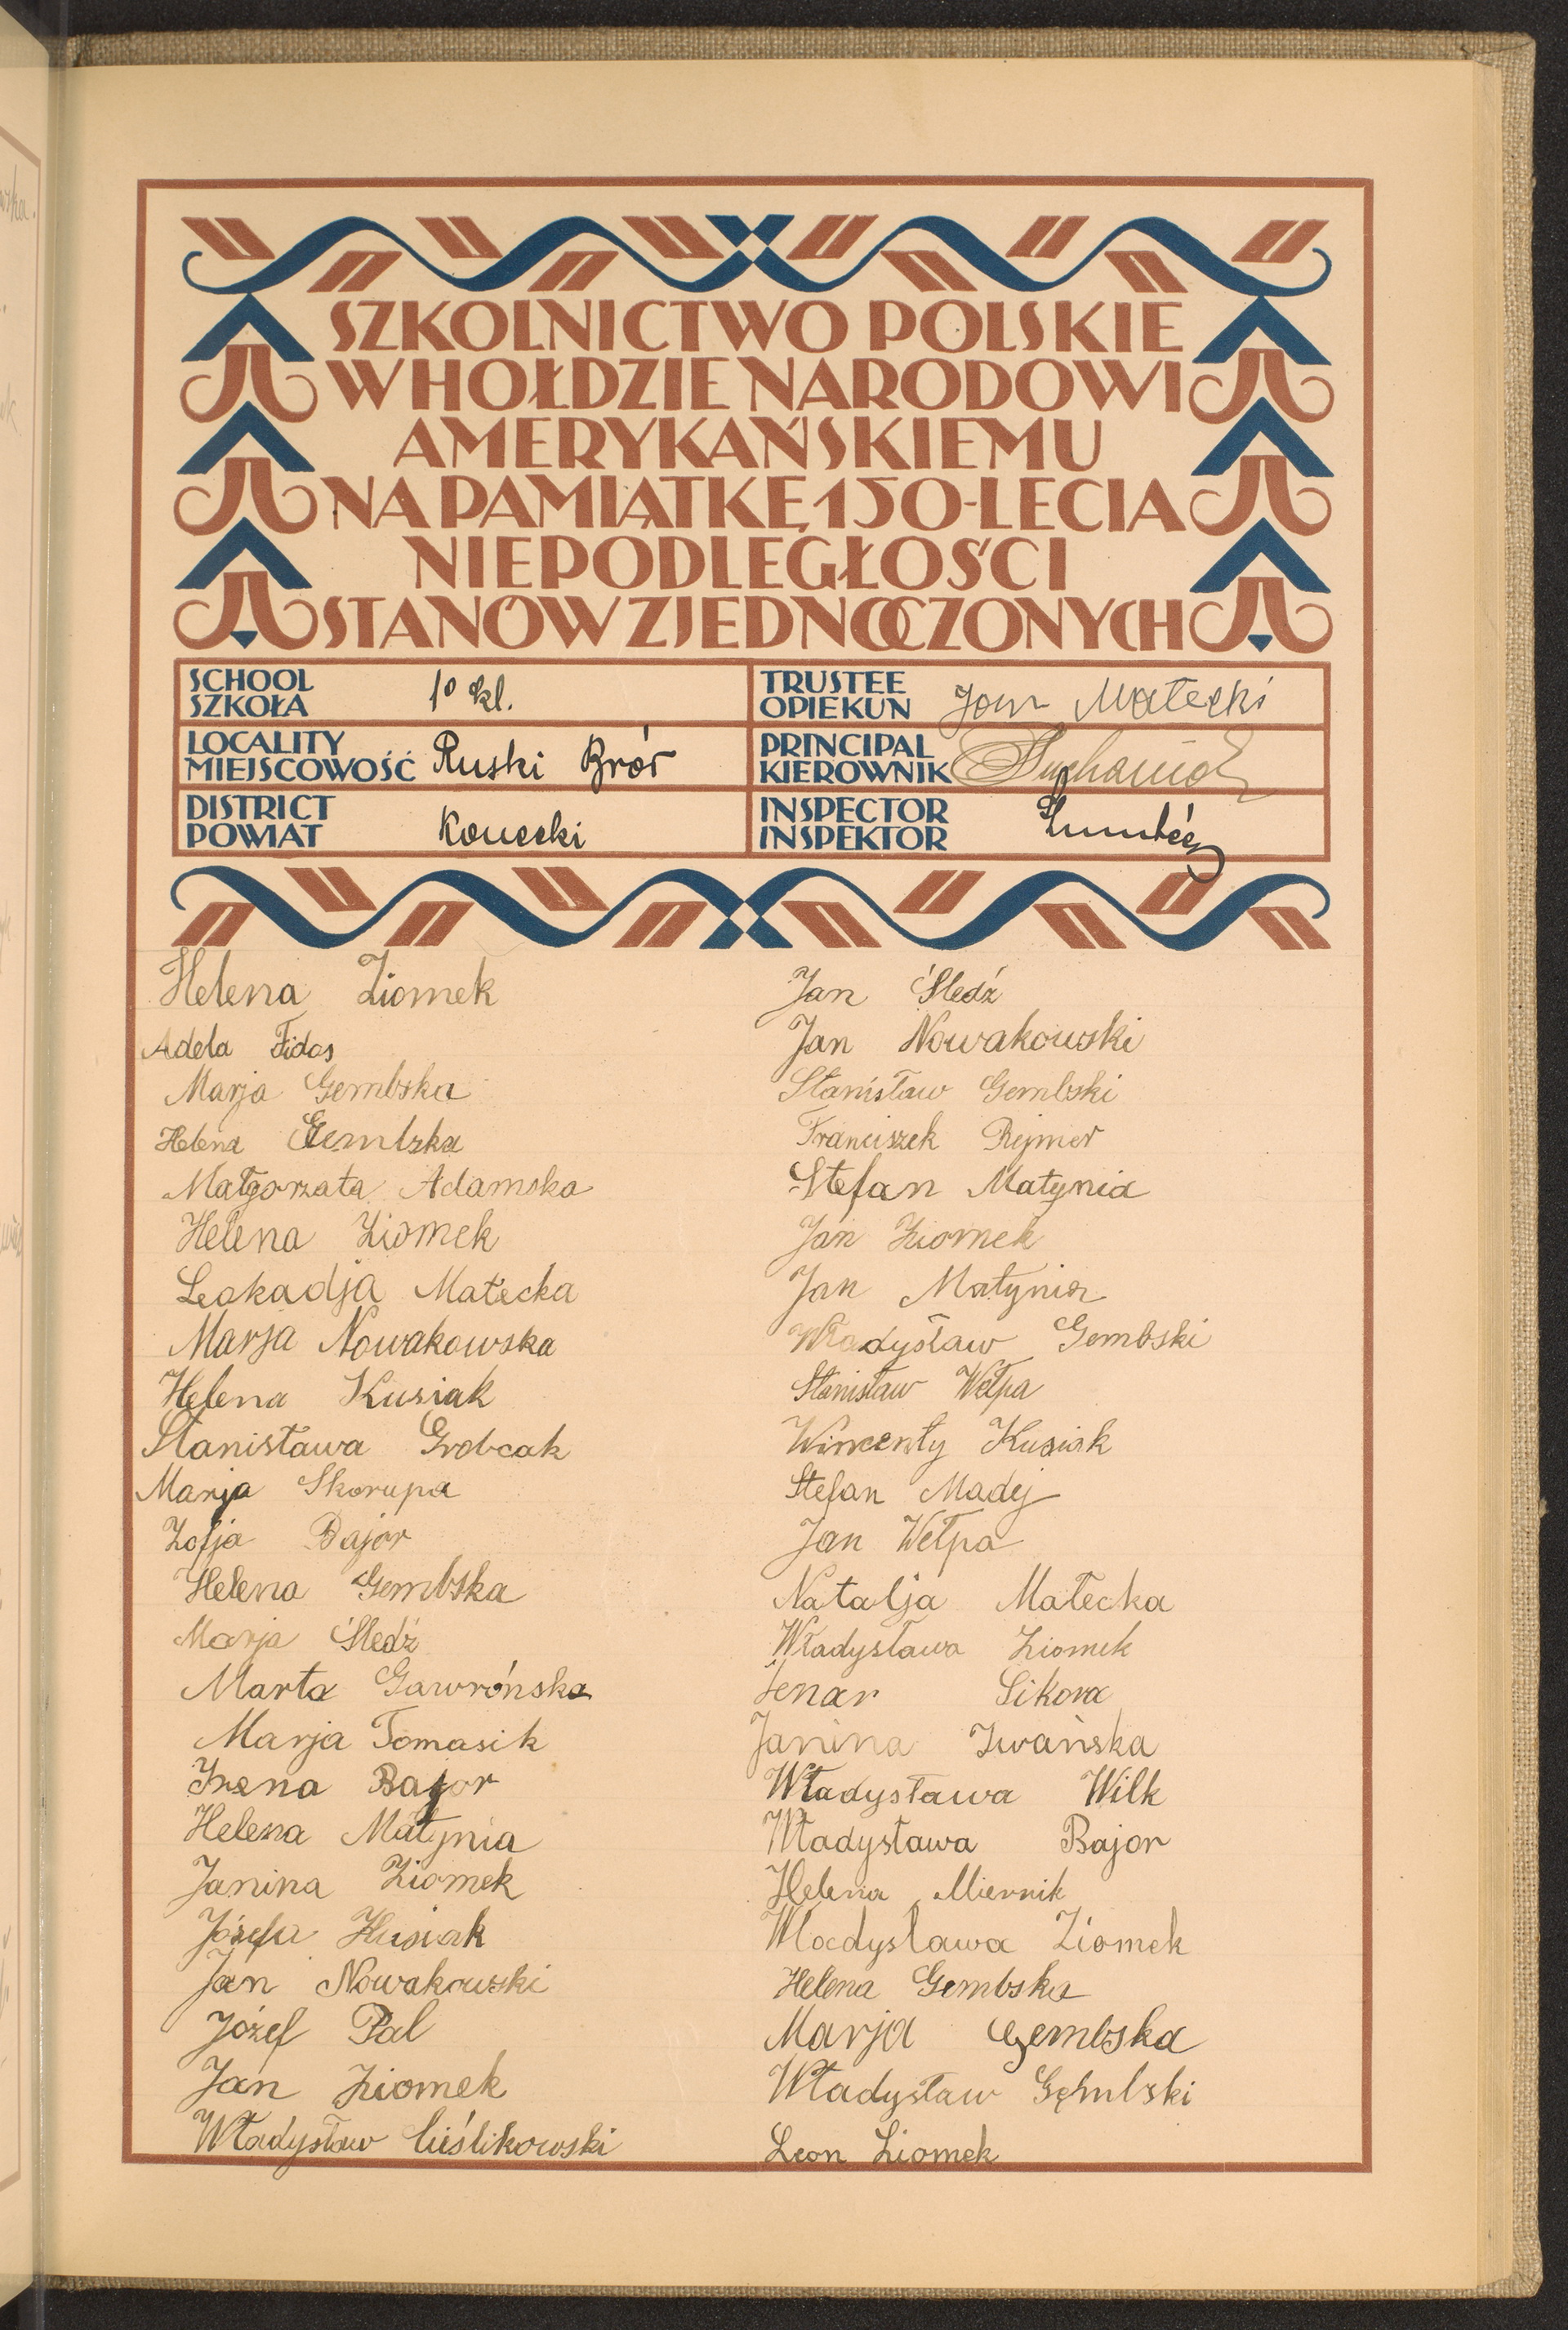 SZKOLNICTWO POLSKIE
W HOŁDZIE NARODOWI
AMERYKAŃSKIEMU
NA PAMIĄTKĘ 150-LECIA
NIEPODLEGŁOŚCI
STANÓW ZJEDNOCZONYCH
SCHOOL
SZKOŁA
1º kl.
TRUSTEE
OPIEKUN
Jan Małecki
LOCALITY
MIEJSCOWOŚĆ
Ruski Bród
PRINCIPAL
KIEROWNIK
DISTRICT
POWIAT
Konecki
INSPECTOR
INSPEKTOR
Helena Ziomek
Adela Fidos
Marja Gembska
Helena Gembska
Małgorzata Adamska
Helena Ziomek
Leokadja Małecka
Marja Nowakowska
Helena Kusiak
Stanisława
Marja Skorupa
Zofja Bajor
Helena Gembska
Marja Śledź
Marta Gawrońska
Marja Tomasik
Irena Bajor
Helena Matynia
Janina Ziomek
Józefa Kusiak
Jan Nowakowski
Józef Pal
Jan Ziomek
Władysław Cieślikowski
Jan Śledź
Jan Nowakowski
Stanisław Gembski
Franciszek Rejmer
Stefan Matynia
Jan Ziomek
Jan Matynia
Władysław Gembski
Stanisław Wełpa
Wincenty Kusiak
Stefan Madej
Jan Wełpa
Natalja Małecka
Władysława Ziomek
Sikora
Janina Iwańska
Władysława Wilk
Władysława Bajor
Helena Miernik
Władysława Ziomek
Helena Gembska
Marja Gembska
Władysław Gębski
Leon Ziomek